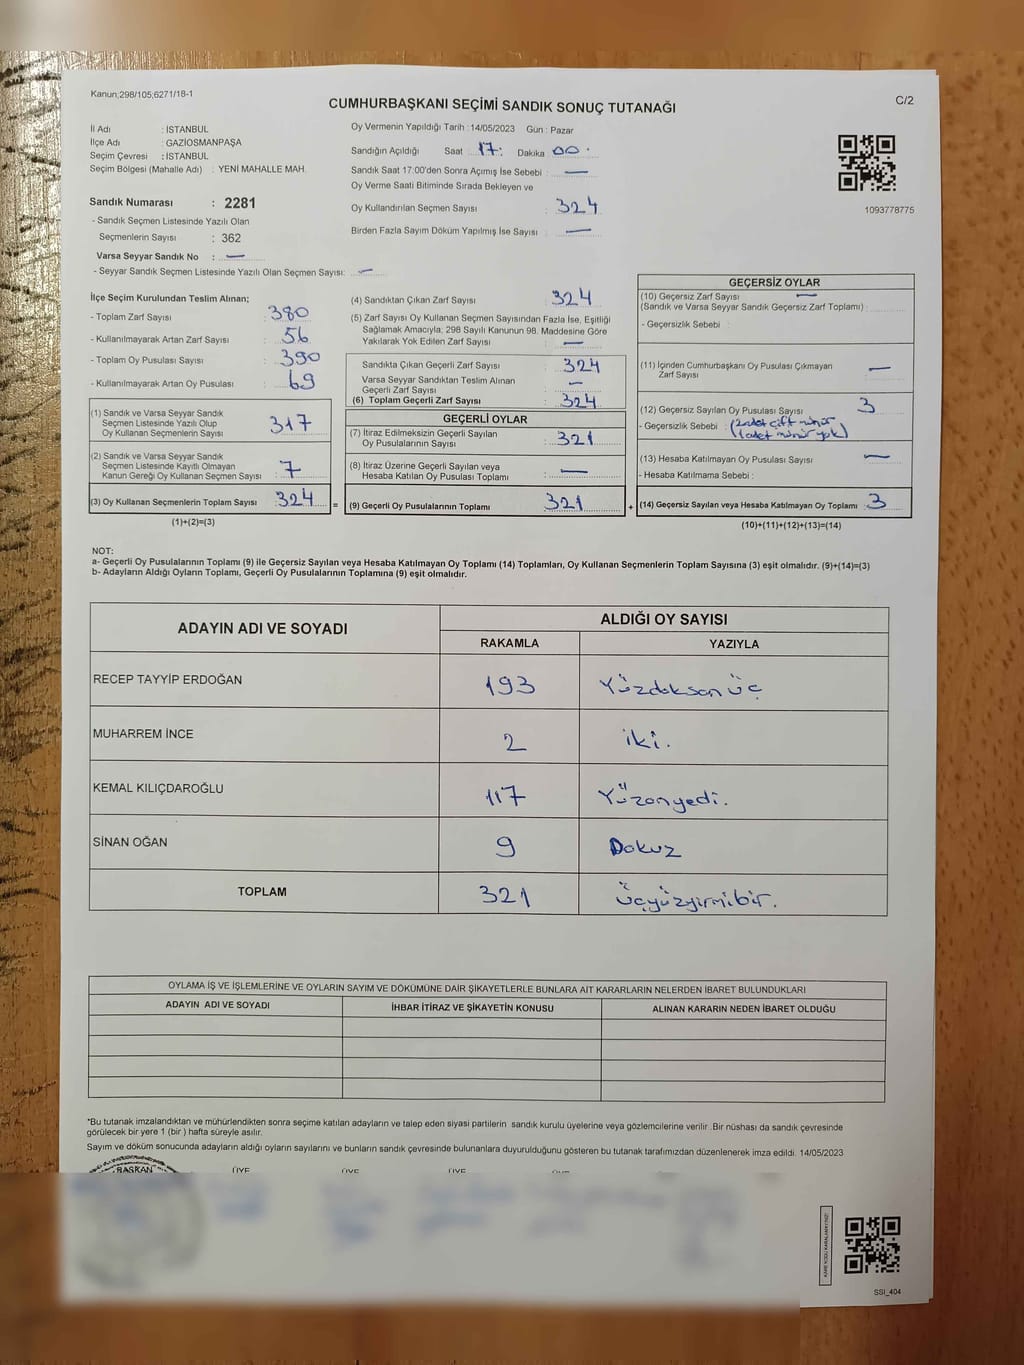 Kanun;298/105;6271/18-1
C/2
CUMHURBAŞKANI SEÇİMİ SANDIK SONUÇ TUTANAĞI
İl Adı : İSTANBUL
İlçe Adı : GAZİOSMANPAŞA
Seçim Çevresi : İSTANBUL
Seçim Bölgesi (Mahalle Adı) : YENİ MAHALLE MAH.
Sandık Numarası : 2281
- Sandık Seçmen Listesinde Yazılı Olan
Seçmenlerin Sayısı : 362
Varsa Seyyar Sandık No : —
- Seyyar Sandık Seçmen Listesinde Yazılı Olan Seçmen Sayısı: —
Oy Vermenin Yapıldığı Tarih : 14/05/2023 Gün : Pazar
Sandığın Açıldığı Saat 17: Dakika 00
Sandık Saat 17:00'den Sonra Açımış İse Sebebi : —
Oy Verme Saati Bitiminde Sırada Bekleyen ve
Oy Kullandırılan Seçmen Sayısı : 324
Birden Fazla Sayım Döküm Yapılmış İse Sayısı : —
1093778775
İlçe Seçim Kurulundan Teslim Alınan;
- Toplam Zarf Sayısı : 380
- Kullanılmayarak Artan Zarf Sayısı : 56
- Toplam Oy Pusulası Sayısı : 390
- Kullanılmayarak Artan Oy Pusulası : 69
(1) Sandık ve Varsa Seyyar Sandık
Seçmen Listesinde Yazılı Olup
Oy Kullanan Seçmenlerin Sayısı : 317
(2) Sandık ve Varsa Seyyar Sandık
Seçmen Listesinde Kayıtlı Olmayan
Kanun Gereği Oy Kullanan Seçmen Sayısı : 7
(3) Oy Kullanan Seçmenlerin Toplam Sayısı : 324 =
(1)+(2)=(3)
(4) Sandıktan Çıkan Zarf Sayısı : 324
(5) Zarf Sayısı Oy Kullanan Seçmen Sayısından Fazla İse, Eşitliği
Sağlamak Amacıyla; 298 Sayılı Kanunun 98. Maddesine Göre
Yakılarak Yok Edilen Zarf Sayısı : —
Sandıkta Çıkan Geçerli Zarf Sayısı : 324
Varsa Seyyar Sandıktan Teslim Alınan
Geçerli Zarf Sayısı : —
(6) Toplam Geçerli Zarf Sayısı : 324
GEÇERLİ OYLAR
(7) İtiraz Edilmeksizin Geçerli Sayılan
Oy Pusulalarının Sayısı : 321
(8) İtiraz Üzerine Geçerli Sayılan veya
Hesaba Katılan Oy Pusulası Toplamı : —
(9) Geçerli Oy Pusulalarının Toplamı : 321 +
GEÇERSİZ OYLAR
(10) Geçersiz Zarf Sayısı : —
(Sandık ve Varsa Seyyar Sandık Geçersiz Zarf Toplamı) :
- Geçersizlik Sebebi :
(11) İçinden Cumhurbaşkanı Oy Pusulası Çıkmayan
Zarf Sayısı : —
(12) Geçersiz Sayılan Oy Pusulası Sayısı : 3
- Geçersizlik Sebebi : (2 adet çift mühür
1 adet mühür yok)
(13) Hesaba Katılmayan Oy Pusulası Sayısı : —
- Hesaba Katılmama Sebebi :
(14) Geçersiz Sayılan veya Hesaba Katılmayan Oy Toplamı : 3
(10)+(11)+(12)+(13)=(14)
NOT:
a- Geçerli Oy Pusulalarının Toplamı (9) ile Geçersiz Sayılan veya Hesaba Katılmayan Oy Toplamı (14) Toplamları, Oy Kullanan Seçmenlerin Toplam Sayısına (3) eşit olmalıdır. (9)+(14)=(3)
b- Adayların Aldığı Oyların Toplamı, Geçerli Oy Pusulalarının Toplamına (9) eşit olmalıdır.
ADAYIN ADI VE SOYADI ALDIĞI OY SAYISI
RAKAMLA YAZIYLA
RECEP TAYYİP ERDOĞAN 193 Yüzdoksan üç
MUHARREM İNCE 2 iki.
KEMAL KILIÇDAROĞLU 117 Yüzonyedi.
SİNAN OĞAN 9 Dokuz
TOPLAM 321 üçyüzyirmibir.
OYLAMA İŞ VE İŞLEMLERİNE VE OYLARIN SAYIM VE DÖKÜMÜNE DAİR ŞİKAYETLERLE BUNLARA AİT KARARLARIN NELERDEN İBARET BULUNDUKLARI
ADAYIN ADI VE SOYADI İHBAR İTİRAZ VE ŞİKAYETİN KONUSU ALINAN KARARIN NEDEN İBARET OLDUĞU
*Bu tutanak imzalandıktan ve mühürlendikten sonra seçime katılan adayların ve talep eden siyasi partilerin sandık kurulu üyelerine veya gözlemcilerine verilir. Bir nüshası da sandık çevresinde
görülecek bir yere 1 (bir) hafta süreyle asılır.
Sayım ve döküm sonucunda adayların aldığı oyların sayılarını ve bunların sandık çevresinde bulunanlara duyurulduğunu gösteren bu tutanak tarafımızdan düzenlenerek imza edildi. 14/05/2023
BAŞKAN ÜYE ÜYE ÜYE
SSI_404